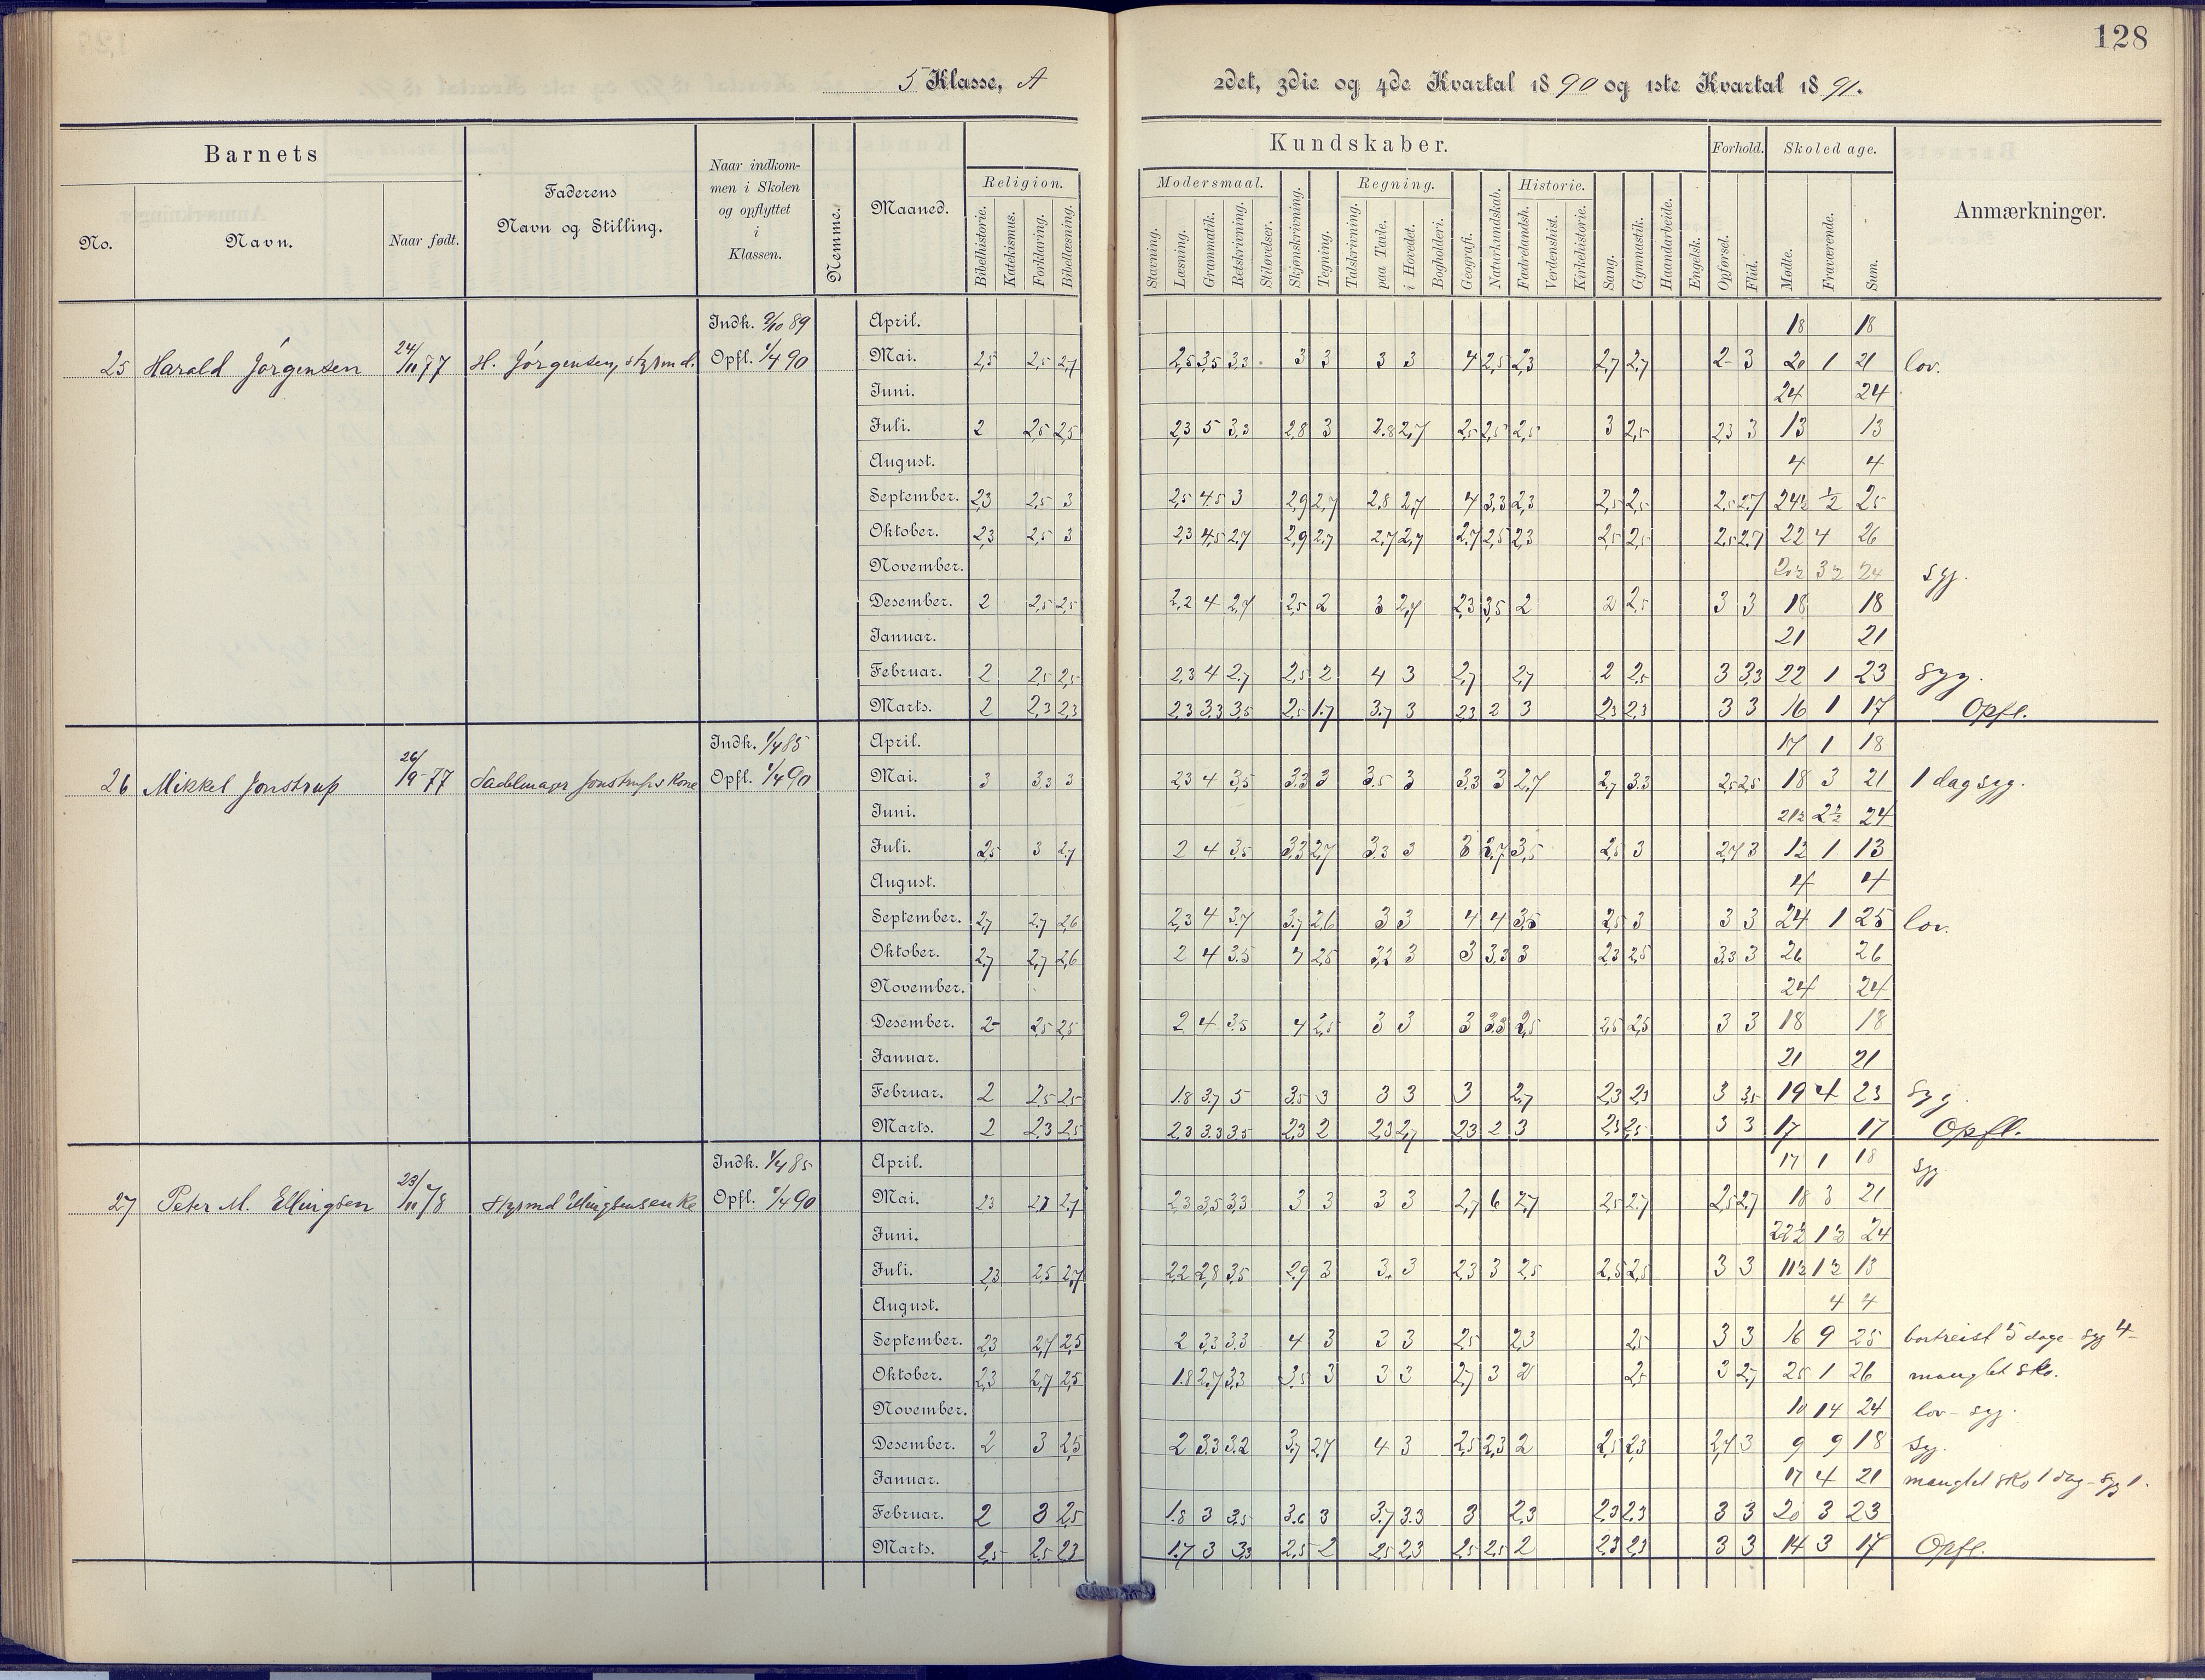 128
5 Klasse, A
2det, 3die og 4de Kvartal 1890 og 1ste Kvartal 1891.
Barnets
No.
Navn.
Naar født.
Faderens
Navn og Stilling.
Naar indkom-
men i Skolen
og opflyttet
i
Klassen.
Nemme.
Maaned.
Kundskaber.
Religion.
Bibelhistorie. Katekismus. Forklaring. Bibellæsning.
Modersmaal.
Stavning. Læsning. Grammatik. Retskrivning. Stiløvelser.
Skjønskrivning. Tegning.
Regning.
Talskrivning. paa Tavle. i Hovedet. Bogholderi.
Geografi. Naturkundskab.
Historie.
Fædrelandsh. Verdenshist. Kirkehistorie.
Sang. Gymnastik. Haandarbeide. Engelsk.
Forhold.
Opførsel. Flid.
Skoledage.
Mødte. Fraværende. Sum.
Anmærkninger.
25 Harald Jørgensen 24/11 77 H. Jørgensen, styrmd. Indk. 9/10 89 Opfl. 1/4 90
April. 18 18
Mai. 2,5 2,5 2,7 2,5 3,5 3,3 3 3 3 3 4 2,5 2,3 2,7 2,7 2 3 20 1 21 lov.
Juni. 24 24
Juli. 2 2,5 2,5 2,3 5 3,3 2,8 3 2.8 2,7 2,5 2,5 2,5 3 2,5 2,3 3 13 13
August. 4 4
September. 2,3 2,5 3 2,5 4,5 3 2,9 2,7 2.8 2,7 4 3,3 2,3 2,5 2,5 2,5 2,7 24½ ½ 25
Oktober. 2,3 2,5 3 2,3 4,5 2,7 2,9 2,7 2,7 2,7 2,7 2,5 2,3 2,5 2,5 2,5 2,7 22 4 26
November. 20½ 3½ 24 syg.
Desember. 2 2,5 2,5 2,2 4 2,7 2,5 2 3 2,7 2,3 3,5 2 2 2,5 3 3 18 18
Januar. 21 21
Februar. 2 2,5 2,5 2,3 4 2,7 2,5 2 4 3 2,7 2,7 2 2,5 3 3,3 22 1 23 syg.
Marts. 2 2,3 2,3 2,3 3,3 3,5 2,5 1.7 3.7 3 2,3 2 3 2,3 2,3 3 3 16 1 17 Opfl.
26 Mikkel Jonstrup 26/9 77 Sadelmager Jonstrups Kone Indk. 1/4 85 Opfl. 1/4 90
April. 17 1 18
Mai. 3 3,3 3 2,3 4 3,5 3.3 3 3.5 3 3.3 3 2,7 2,7 3.3 2,5 2,5 18 3 21 1 dag syg.
Juni. 21½ 2½ 24
Juli. 2,5 3 2,7 2 4 3,5 3,3 2,7 3.3 3 3 2,7 3,5 2,5 3 2,7 3 12 1 13
August. 4 4
September. 2,7 2,7 2,6 2,3 4 3,7 3,7 2,6 3 3 4 4 3,5 2,5 3 3 3 24 1 25 lov.
Oktober. 2,7 2,7 2,6 2 4 3.5 4 2,5 3,2 3 3 3,3 3 2,3 2,5 3,3 3 26 26
November. 24 24
Desember. 2 2,5 2,5 2 4 3,5 4 2,5 3 3 3 3,3 2,5 2,5 2,5 3 3 18 18
Januar. 21 21
Februar. 2 2,5 2,5 1.8 3,7 5 3,5 3 3 3 3 2,7 2,3 2,3 3 3,5 19 4 23 syg.
Marts. 2 2,3 2,5 2,3 3.3 3.5 2,3 2 2,3 2,7 2,3 2 3 2,3 2,5 3 3 17 17 Opfl.
27 Peter M. Ellingsen 23/11 78 Indk. 1/4 85 Opfl. 1/4 90
April. 17 1 18 syg
Mai. 2,3 2,7 2,7 2,3 3,5 3,3 3 3 3 3 2,7 6 2,7 2,5 2,7 2,5 2,7 18 3 21
Juni. 22½ 1½ 24
Juli. 2,3 2,5 2,7 2,2 2,8 3,5 2,9 3 3. 3 2,3 3 2,5 2,5 2,5 3 3 11½ 1½ 13
August. 4 4
September. 2,3 2,7 2,5 2 3,3 3.3 4 3 3 3 2,5 2,3 2,5 3 3 16 9 25 bortreist 5 dage - syg 4-
Oktober. 2,3 2,7 2,5 1.8 2.7 3,3 3,5 3 3 3 2,7 3 2 2,5 3 2,7 25 1 26 manglet sko.
November. 10 14 24 lov - syg.
Desember. 2 3 2,5 2 3.3 3.2 3,7 2,7 4 3 2,5 2,3 2 2,5 2,3 2,7 3 9 9 18 Syg.
Januar. 17 4 21 manglet sko 1 dag - syg 1.
Februar. 2 3 2,5 1.8 3 3,5 3.6 3 3.7 3.3 3 2,3 2,3 2,3 3 3 20 3 23
Marts. 2,5 2,5 2,3 1.7 3 3,3 2,5 2 2,5 2,3 2,5 2,5 2 2,3 2,3 3 3 14 3 17 Opfl.